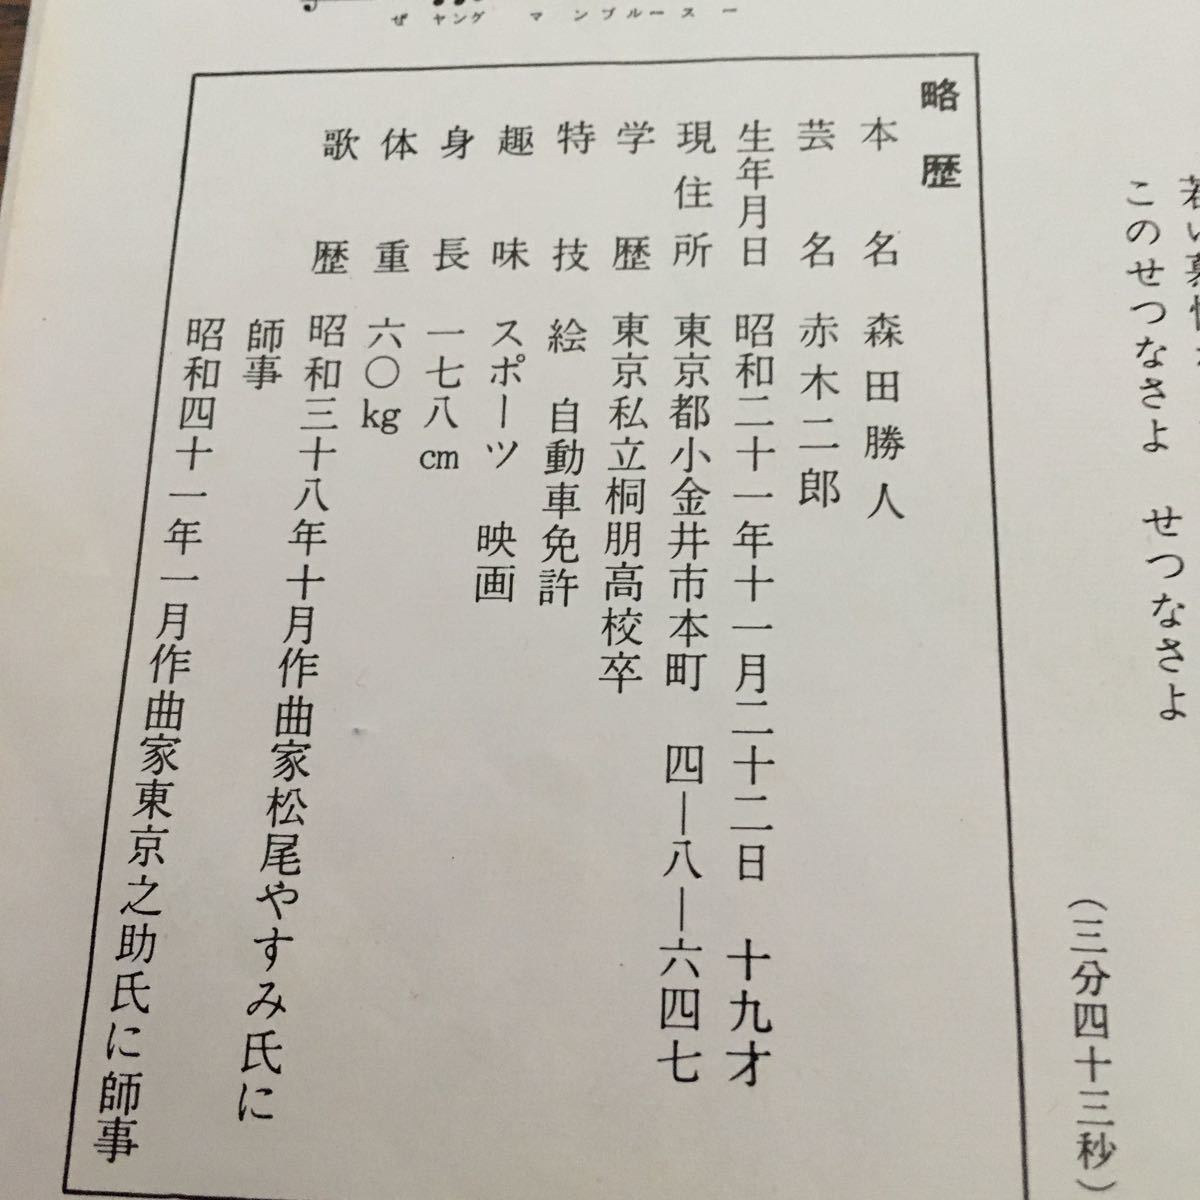 ぜ ヤング マ ンブルース ー
このせつなさよ せつなさよ
(三分四十三秒)
略歴
本名 森田勝人
芸名 赤木二郎
生年月日 昭和二十一年十一月二十二日 十九才
現住所 東京都小金井市本町 四―八―六四七
学歴 東京私立桐朋高校卒
特技 絵 自動車免許
趣味 スポーツ 映画
身長 一七八cm
体重 六〇kg
歌歴 昭和三十八年十月作曲家松尾やすみ氏に
師事
昭和四十一年一月作曲家東京之助氏に師事